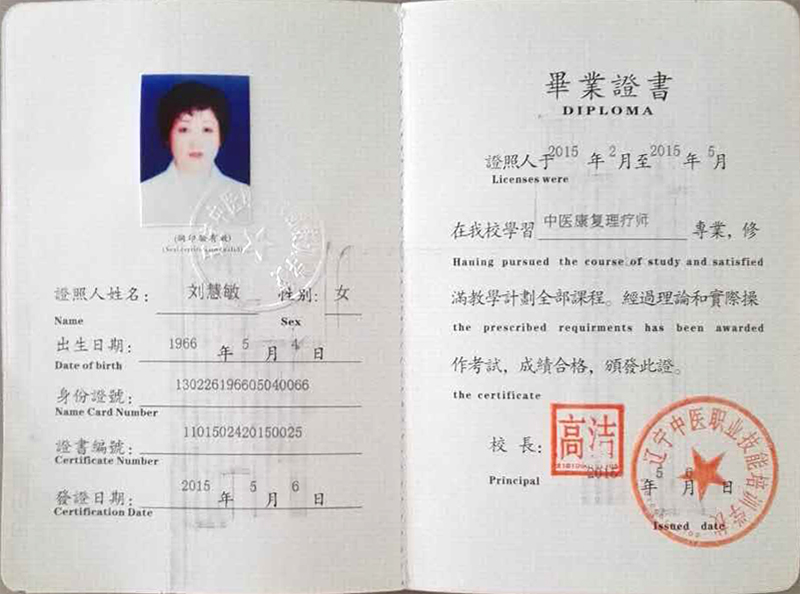 (鋼印驗有效)
證照人姓名: 刘慧敏 性别: 女
Name Sex
出生日期: 1966 年 5 月 4 日
Date of birth
身份證號: 130226196605040066
Name Card Number
證書編號: 1101502420150025
Certificate Number
發證日期: 2015 年 5 月 6 日
Certification Date
畢業證書
DIPLOMA
證照人于2015 年 2月至2015 年 5月
Licenses were
在我校學習 中医康复理疗师 專業，修
Hauing pursued the course of study and satisfied
滿教學計劃全部課程。經過理論和實際操
the prescribed requirments has been awarded
作考試，成績合格，頒發此證。
the certificate
校長: 高洁
Principal 2015 年 5 月 6 日
Issued date
辽宁中医职业技能培训学校